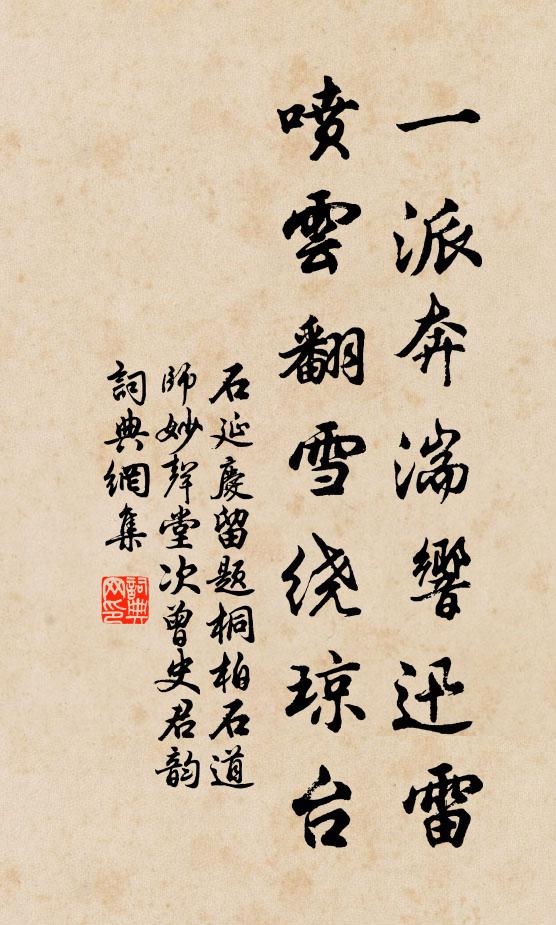 一派奔湍響迅雷
噴雲翻雪绕琼台
石延慶留題桐柏石道
師妙聲堂次曾史君韵
詞典網集
詞典
网印